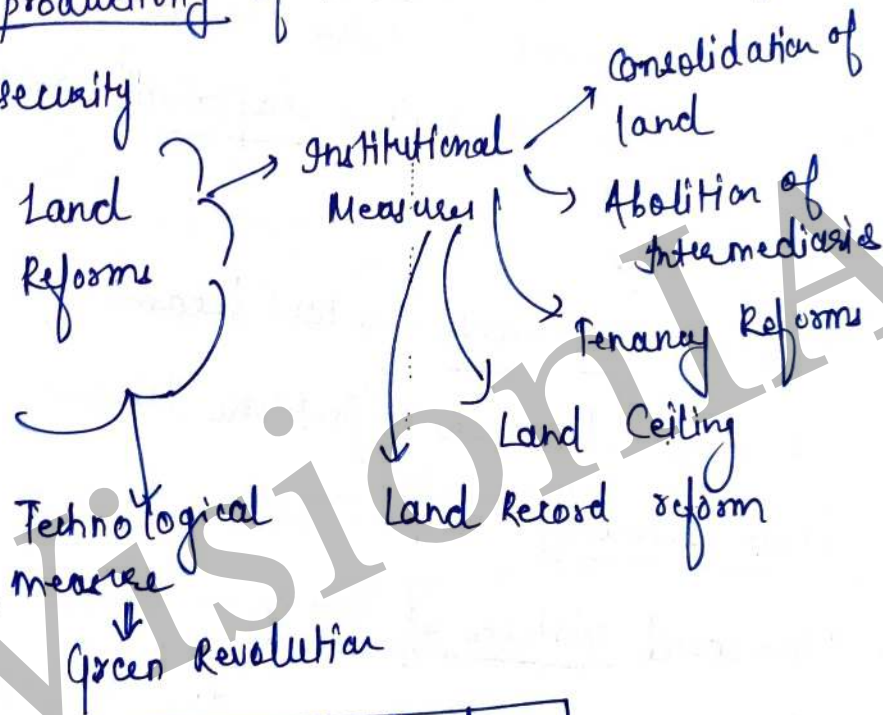 production of
security
Land
Reforms
Institutional
Measures
Consolidation of
land
Abolition of
Intermediaries
Tenancy Reforms
Land Ceiling
Land Record reform
Technological
measure
Green Revolution
VisionIA